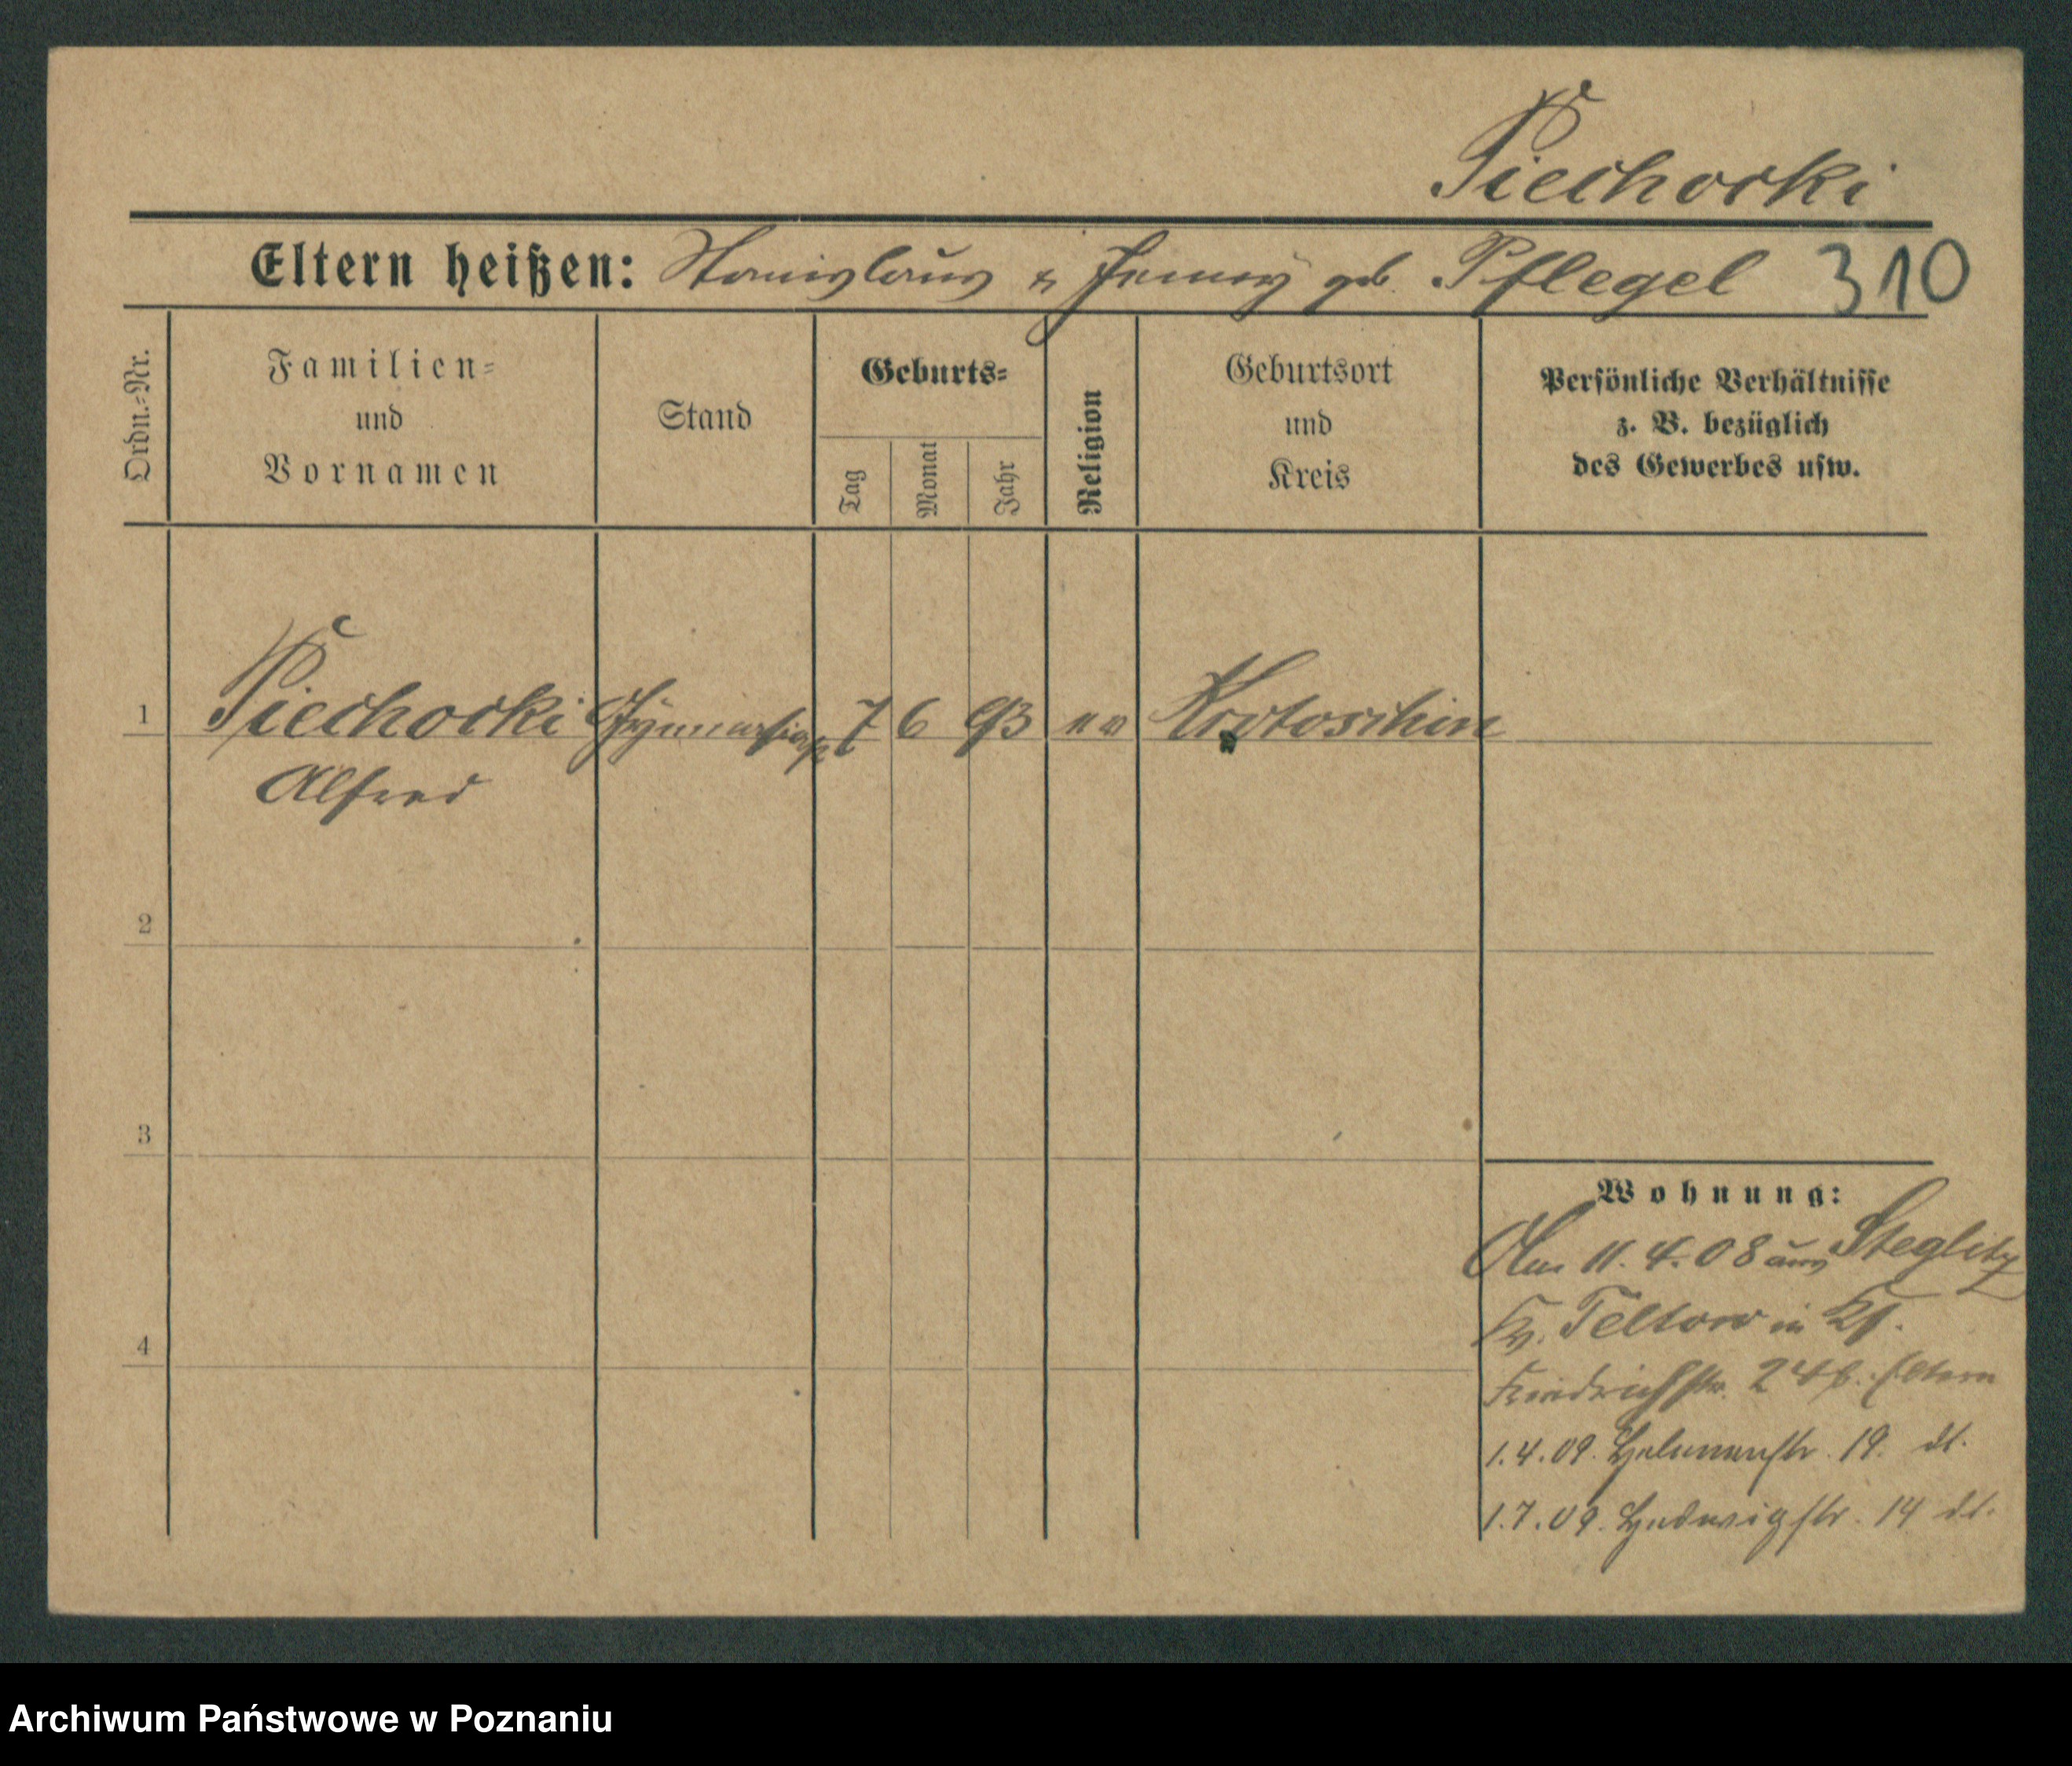 Piechocki
Eltern heißen: Stanislaus u. Jenny geb. Pflegel 310
Ordn.-Nr.
Familien-
und
Vornamen
Stand
Geburts-
Tag
Monat
Jahr
Religion
Geburtsort
und
Kreis
Persönliche Verhältnisse
z. B. bezüglich
des Gewerbes usw.
1 Piechocki 7 6 93 ev Krotoschin
Alfred
2
3
4
Wohnung:
Am 11.4.08 aus Steglitz
Kr. Teltow in
Friedrichstr. Eltern
1.4.09. 19. dt.
1.7.09. Hedwigstr. 14 dt.
Archiwum Państwowe w Poznaniu